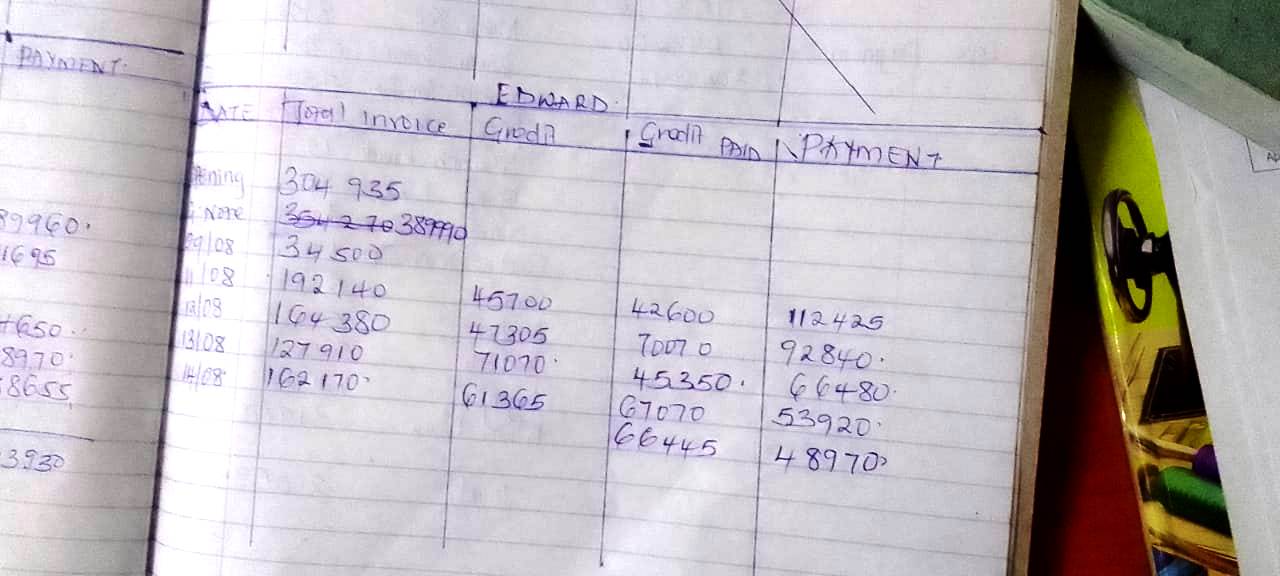 PAYMENT.
EDWARD.
DATE Total Invoice Credit Credit PAID PAYMENT
304 935
89960. 354 270 389990
1695 29/08 34 500
11/08 192 140 45700 42600 112425
4650. 12/08 164 380 47305 70070 92840.
8970. 13/08 127 910 71070. 45350. 66480.
8655 14/08 162 170. 61365 67070 53920.
66445 48970
3930